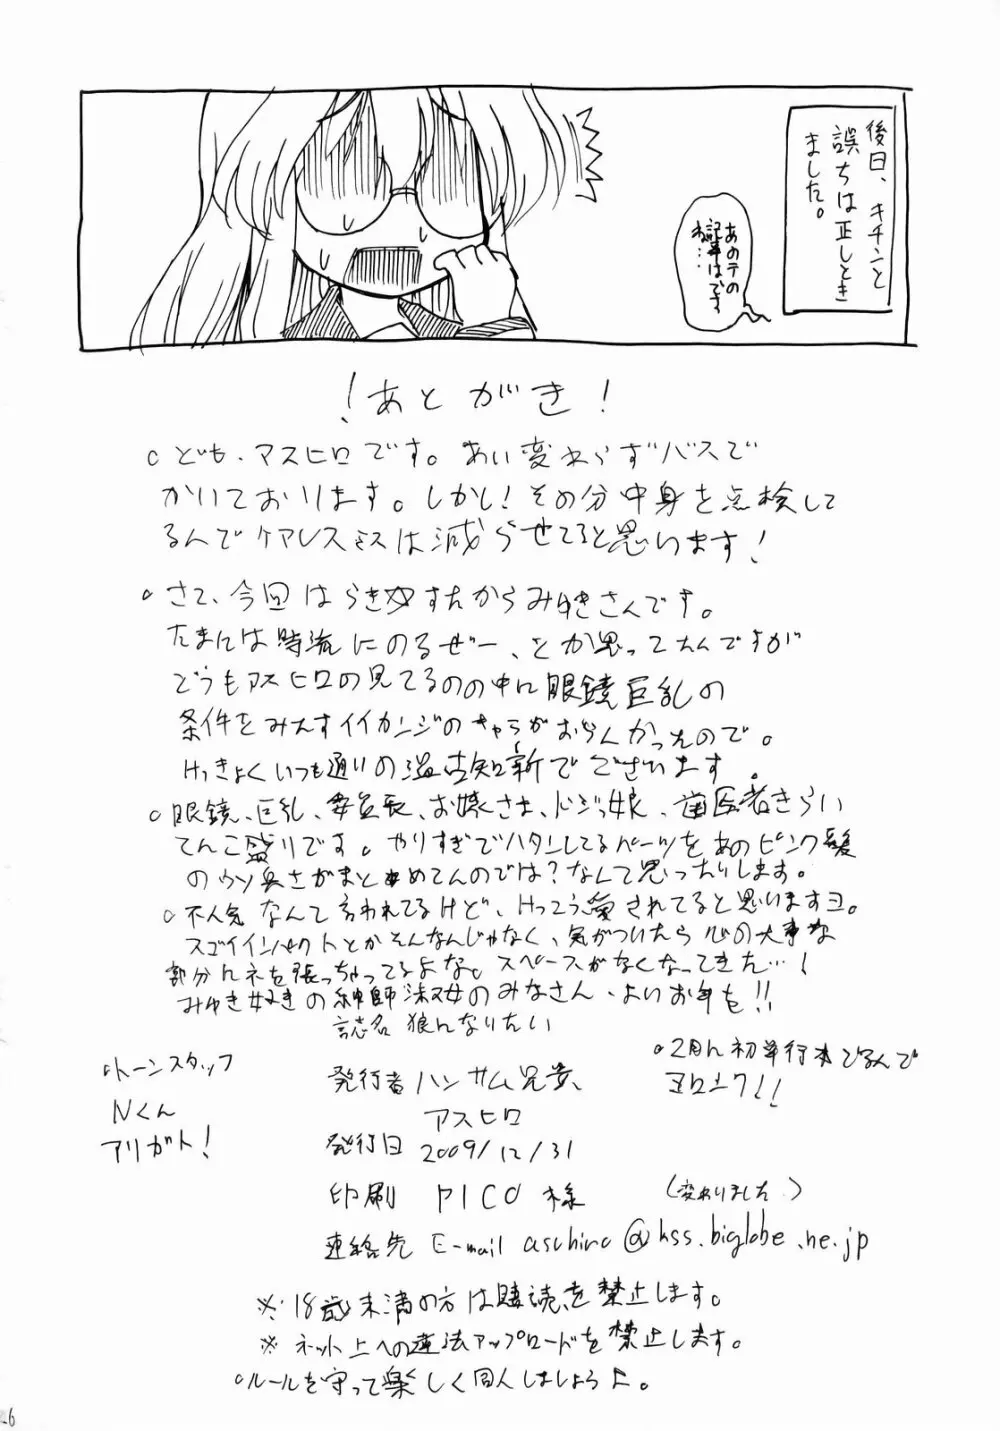 後日、キチンと
誤ちは正しとき
ました。
あのテの
記事はですね…
！あとがき！
○ども、アスヒロです。あい変わらずバスで
かいております。しかし！その分中身を点検して
るんでケアレスミスは減らせてると思います！
○さて、今回はらき☆すたからみゆきさんです。
たまには時流にのるぜー、とか思ってたんですが
どうもアスヒロの見てるのの中に眼鏡巨乳の
条件をみたすイイカンジのキャラがおらんかったので。
けっきょくいつも通りの温古知新でございます。
○眼鏡、巨乳、委員長、お嬢さま、ドジッ娘、歯医者きらい
てんこ盛りです。やりすぎでハタンしてるパーツをあのピンク髪
のウソ臭さがまとめてんのでは？なんて思ったりします。
○不人気なんて言われてるけど、けっこう愛されてると思いますヨ。
スゴイインパクトとかそんなんじゃなく、気がついたら心の大事な
部分にネを張っちゃってるよな。スペースがなくなってきた…！
みゆき好きの紳師淑女のみなさん、よいお年を!!
誌名 狼になりたい
○トーンスタッフ
Nくん
アリガト！
発行者 ハンサム兄貴、
アスヒロ
発行日 2009/12/31
印刷 PICO 様
○2月に初単行本でるんで
ヨロシク!!
(変わりました)
連絡先 E-mail asuhiro@kss.biglobe.ne.jp
※18歳未満の方は購読を禁止します。
※ネット上への違法アップロードを禁止します。
○ルールを守って楽しく同人しましょうよ。